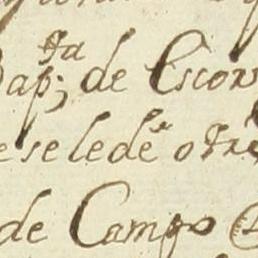 Bap;ta de Escov
e se le de otre
de Campo